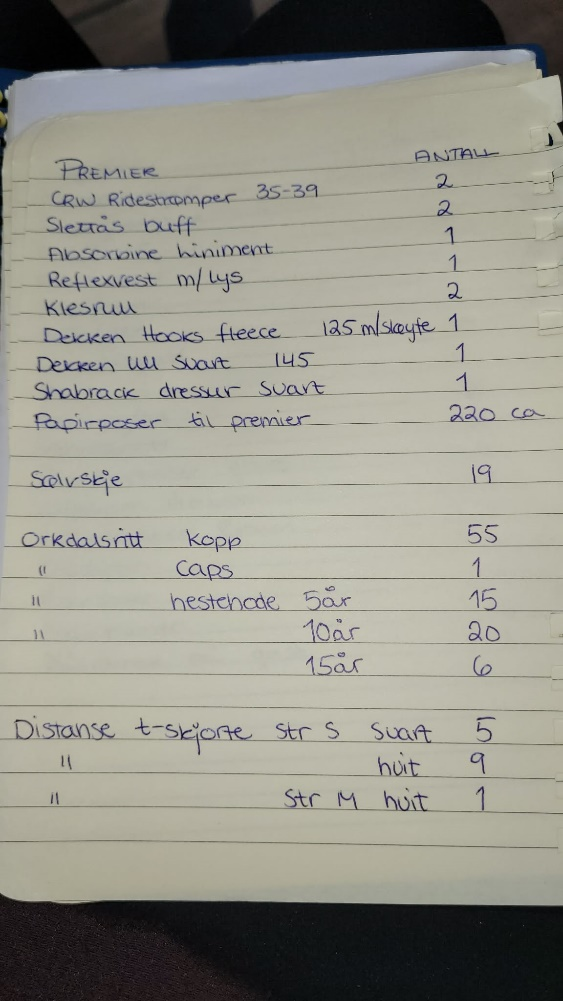 PREMIER ANTALL
CRW Ridestrømper 35-39 2
Slettås buff 2
Absorbine liniment 1
Reflexvest m/lys 1
Klesrull 2
Dekken Hooks fleece 125 m/sløyfe 1
Dekken Ull Svart 145 1
Shabrack dressur Svart 1
Papirposer til premier 220 ca
Sølvskje 19
Orkdalsritt Kopp 55
" Caps 1
" hestehode 5år 15
" 10år 20
15år 6
Distanse t-skjorte Str S Svart 5
" hvit 9
" Str M hvit 1